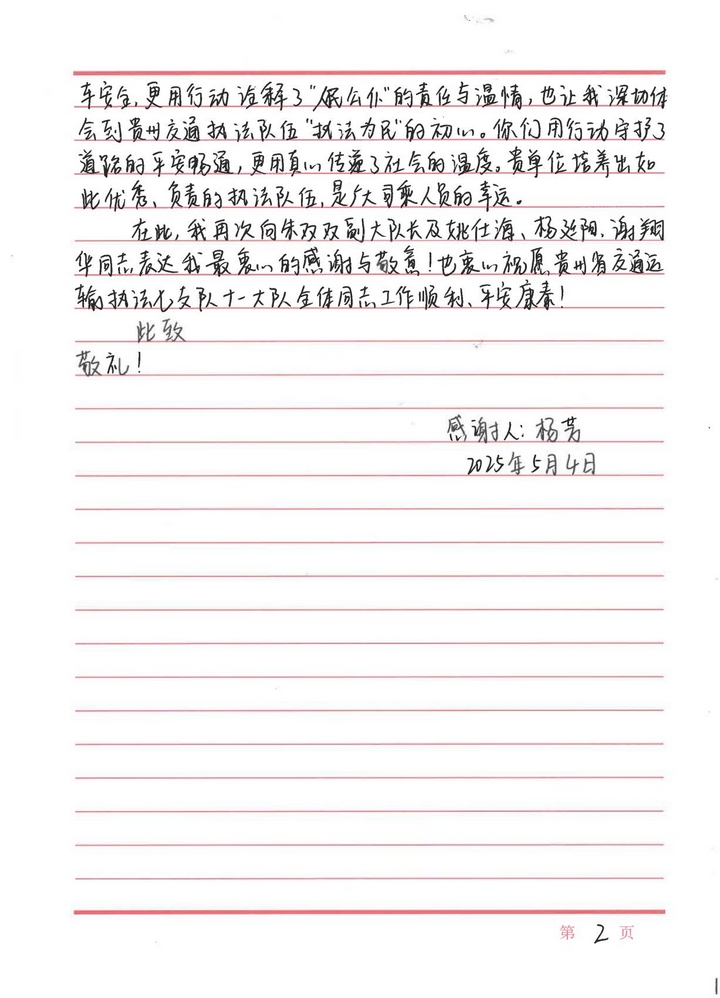 车安全,更用行动诠释了“人民公仆”的责任与温情,也让我深切体
会到贵州交通执法队伍“执法为民”的初心。你们用行动守护了
道路的平安畅通,更用真心传递了社会的温度。贵单位培养出如
此优秀、负责的执法队伍,是广大司乘人员的幸运。
在此,我再次向朱双双副大队长及姚仕海、杨延阳、谢翔
华同志表达我最衷心的感谢与敬意!也衷心祝愿贵州省交通运
输执法七支队十一大队全体同志工作顺利、平安康泰!
此致
敬礼!
感谢人:杨芳
2025年5月4日
第 2 页